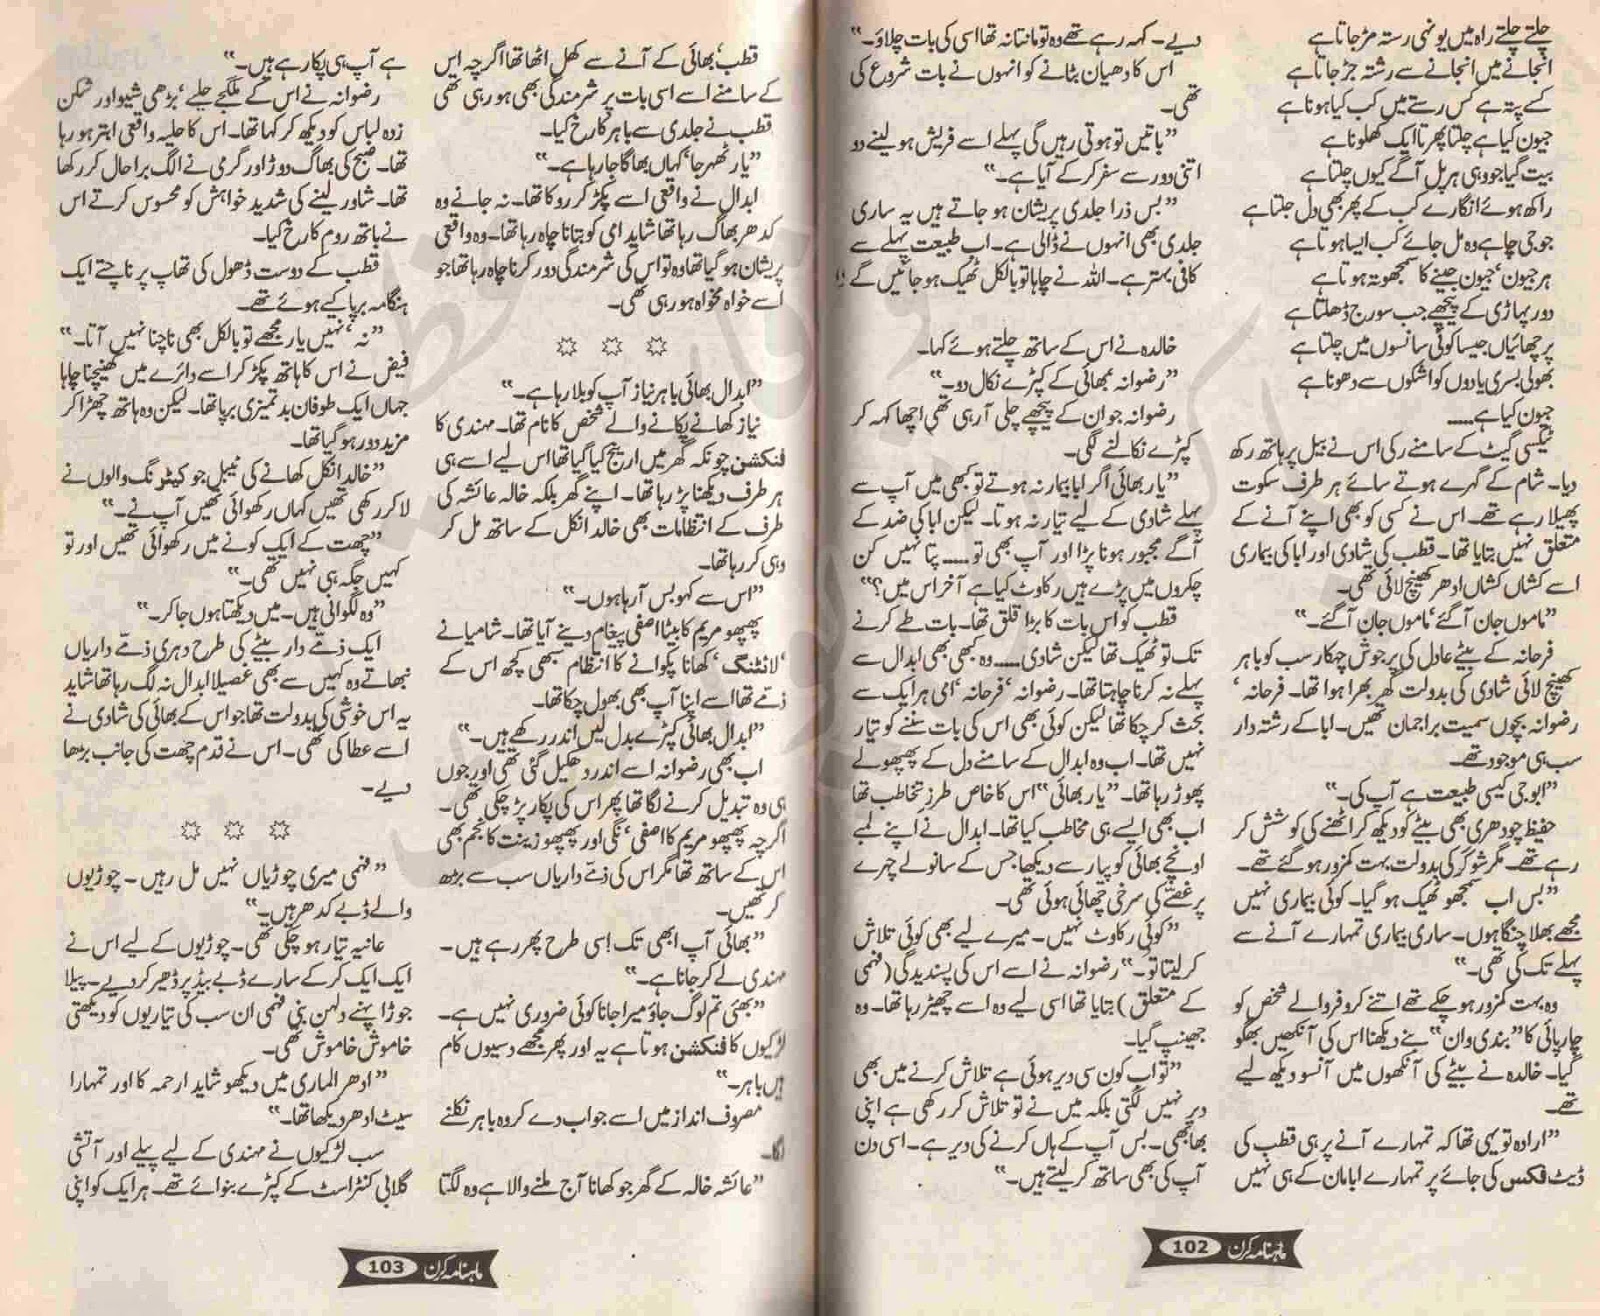 چلتے چلتے راہ میں یونہی رستہ مڑ جاتا ہے
انجانے میں انجانے سے رشتہ جڑ جاتا ہے
کسے پتہ ہے کس رستے میں کب کیا ہونا ہے
جیون کیا ہے چلتا پھرتا ایک کھلونا ہے
بیت گیا جو وہی ہر پل آگے کیوں چلتا ہے
راکھ ہوئے انگارے کب کے پھر بھی دل جلتا ہے
جو جی چاہے وہ مل جائے کب ایسا ہوتا ہے
ہر جیون‘ جیون جینے کا سمجھوتہ ہوتا ہے
دور پہاڑی کے پیچھے جب سورج ڈھلتا ہے
پرچھائیاں جیسا کوئی سانسوں میں چلتا ہے
بھولی بسری یادوں کو اشکوں سے دھونا ہے
جیون کیا ہے.....
ٹیکسی گیٹ کے سامنے رکی اس نے بیل پر ہاتھ رکھ
دیا۔ شام کے گہرے ہوتے سائے ہر طرف سکوت
پھیلا رہے تھے۔ اس نے کسی کو بھی اپنے آنے کے
متعلق نہیں بتایا تھا۔ قطب کی شادی اور ابا کی بیماری
اسے کشاں کشاں ادھر کھینچ لائی تھی۔
”ماموں جان آ گئے‘ ماموں جان آ گئے۔“
فرحانہ کے بیٹے عادل کی پرجوش چہکار سب کو باہر
کھینچ لائی شادی کی بدولت گھر بھرا ہوا تھا۔ فرحانہ‘
رضوانہ بچوں سمیت براجمان تھیں۔ ابا کے رشتہ دار
سب ہی موجود تھے۔
”ابو جی کیسی طبیعت ہے آپ کی۔“
حفیظ چودھری بھی بیٹے کو دیکھ کر اٹھنے کی کوشش کر
رہے تھے۔ مگر شوگر کی بدولت بہت کمزور ہو گئے تھے۔
”بس اب سمجھو ٹھیک ہو گیا۔ کوئی بیماری نہیں
مجھے بھلا چنگا ہوں۔ ساری بیماری تمہارے آنے سے
پہلے تک کی تھی۔“
وہ بہت کمزور ہو چکے تھے اتنے کروفر والے شخص کو
چارپائی کا ”بندی وان“ بنے دیکھنا اس کی آنکھیں بھگو
گیا۔ خالدہ نے بیٹے کی آنکھوں میں آنسو دیکھ لیے
تھے۔
”ارادہ تو یہی تھا کہ تمہارے آنے پر ہی قطب کی
ڈیٹ فکس کی جائے پر تمہارے ابا مان کے ہی نہیں
دیے۔ کہہ رہے تھے وہ تو مانتا نہ تھا اسی کی بات چلاؤ۔“
اس کا دھیان بٹانے کو انہوں نے بات شروع کی
تھی۔
”باتیں تو ہوتی رہیں گی پہلے اسے فریش ہو لینے دو
اتنی دور سے سفر کر کے آیا ہے۔“
”بس ذرا جلدی پریشان ہو جاتے ہیں یہ ساری
جلدی بھی انہوں نے ڈالی ہے۔ اب طبیعت پہلے سے
کافی بہتر ہے۔ اللہ نے چاہا تو بالکل ٹھیک ہو جائیں گے
خالدہ نے اس کے ساتھ چلتے ہوئے کہا۔
”رضوانہ بھائی کے کپڑے نکال دو۔“
رضوانہ جو ان کے پیچھے چلی آ رہی تھی اچھا کہہ کر
کپڑے نکالنے لگی۔
”یار بھائی اگر ابا بیمار نہ ہوتے تو کبھی میں آپ سے
پہلے شادی کے لیے تیار نہ ہوتا۔ لیکن ابا کی ضد کے
آگے مجبور ہونا پڑا اور آپ بھی تو..... پتا نہیں کن
چکروں میں پڑے ہیں رکاوٹ کیا ہے آخر اس میں؟“
قطب کو اس بات کا بڑا قلق تھا۔ بات طے کرنے
تک تو ٹھیک تھا لیکن شادی..... وہ کبھی بھی ابدال سے
پہلے نہ کرنا چاہتا تھا۔ رضوانہ‘ فرحانہ‘ امی ہر ایک سے
بحث کر چکا تھا لیکن کوئی بھی اس کی بات سننے کو تیار
نہیں تھا۔ اب وہ ابدال کے سامنے دل کے پھپھولے
پھوڑ رہا تھا۔ ”یار بھائی“ اس کا خاص طرز تخاطب تھا
اب بھی ایسے ہی مخاطب کیا تھا۔ ابدال نے اپنے لمبے
اونچے بھائی کو پیار سے دیکھا‘ جس کے سانولے چہرے
پر غصے کی سرخی چھائی ہوئی تھی۔
”کوئی رکاوٹ نہیں۔ میرے لیے بھی کوئی تلاش
کر لیتا تو۔“ رضوانہ نے اسے اس کی پسندیدگی (فنمی
کے متعلق) بتایا تھا اسی لیے وہ اسے چھیڑ رہا تھا۔ وہ
جھینپ گیا۔
”تو اب کون سی دیر ہوئی ہے تلاش کرنے میں بھی
دیر نہیں لگتی بلکہ میں نے تو تلاش کر رکھی ہے اپنی
بھابھی۔ بس آپ کے ہاں کرنے کی دیر ہے۔ اسی دن
آپ کی بھی ساتھ کر لیتے ہیں۔“
ماہنامہ کرن 102
قطب‘ بھائی کے آنے سے کھل اٹھا تھا اگرچہ ایس
کے سامنے اسے اسی بات پر شرمندگی بھی ہو رہی تھی
قطب نے جلدی سے باہر کا رخ کیا۔
”یار ٹھہر جا‘ کہاں بھاگا جا رہا ہے۔“
ابدال نے واقعی اسے پکڑ کر روکا تھا۔ نہ جانے وہ
کدھر بھاگ رہا تھا شاید امی کو بتانا چاہ رہا تھا۔ وہ واقعی
پریشان ہو گیا تھا وہ تو اس کی شرمندگی دور کرنا چاہ رہا تھا جو
اسے خواہ مخواہ ہو رہی تھی۔
”ابدال بھائی باہر نیاز آپ کو بلا رہا ہے۔“
نیاز کھانے پکانے والے شخص کا نام تھا۔ مہندی کا
فنکشن چونکہ گھر میں ارینج کیا گیا تھا اس لیے اسے ہی
ہر طرف دیکھنا پڑ رہا تھا۔ اپنے گھر بلکہ خالہ عائشہ کی
طرف کے انتظامات بھی خالد انکل کے ساتھ مل کر
وہی کر رہا تھا۔
”اس سے کہو بس آ رہا ہوں۔“
پھپھو مریم کا بیٹا اصفی پیغام دینے آیا تھا۔ شامیانے
‘لائٹنگ‘ کھانا پکوانے کا انتظام سبھی کچھ اس کے
ذمے تھا اسے اپنا آپ بھی بھول چکا تھا۔
”ابدال بھائی کپڑے بدل لیں اندر رکھے ہیں۔“
اب بھی رضوانہ اسے اندر دھکیل گئی تھی اور جوں
ہی وہ تبدیل کرنے لگا تھا پھر اس کی پکار پڑ چکی تھی۔
اگرچہ پھپھو مریم کا اصفی‘ نگی اور پھپھو زینت کا نجم بھی
اس کے ساتھ تھا مگر اس کی ذمے داریاں سب سے بڑھ
کر تھیں۔
”بھائی آپ ابھی تک اسی طرح پھر رہے ہیں۔
مہندی لے کر جانا ہے۔“
”بھئی تم لوگ جاؤ میرا جانا کوئی ضروری نہیں ہے۔
لڑکیوں کا فنکشن ہوتا ہے یہ اور پھر مجھے دسیوں کام
ہیں باہر۔“
مصروف انداز میں اسے جواب دے کر وہ باہر نکلنے
لگا۔
”عائشہ خالہ کے گھر جو کھانا آج ملنے والا ہے وہ لگتا
ہے آپ ہی پکا رہے ہیں۔“
رضوانہ نے اس کے ملگجے حلیے‘ بڑھی شیو اور شکن
زدہ لباس کو دیکھ کر کہا تھا۔ اس کا حلیہ واقعی ابتر ہو رہا
تھا۔ صبح کی بھاگ دوڑ اور گرمی نے الگ برا حال کر رکھا
تھا۔ شاور لینے کی شدید خواہش کو محسوس کرتے اس
نے باتھ روم کا رخ کیا۔
قطب کے دوست ڈھول کی تھاپ پر ناچتے ایک
ہنگامہ برپا کیے ہوئے تھے۔
”نہ‘ نہیں یار مجھے تو بالکل بھی ناچنا نہیں آتا۔“
فیض نے اس کا ہاتھ پکڑ کر اسے دائرے میں کھینچنا چاہا
جہاں ایک طوفان بدتمیزی برپا تھا۔ لیکن وہ ہاتھ چھڑا کر
مزید دور ہو گیا تھا۔
”خالد انکل کھانے کی ٹیبل جو کیٹرنگ والوں نے
لا کر رکھی تھیں کہاں رکھوائی تھیں آپ نے۔“
”چھت کے ایک کونے میں رکھوائی تھیں اور تو
کہیں جگہ ہی نہیں تھی۔“
”وہ لگوانی ہیں۔ میں دیکھتا ہوں جا کر۔“
ایک ذمے دار بیٹے کی طرح دہری ذمے داریاں
نبھاتے وہ کہیں سے بھی غصیلا ابدال نہ لگ رہا تھا شاید
یہ اس خوشی کی بدولت تھا جو اس کے بھائی کی شادی نے
اسے عطا کی تھی۔ اس نے قدم چھت کی جانب بڑھا
دیے۔
”فنمی میری چوڑیاں نہیں مل رہیں۔ چوڑیوں
والے ڈبے کدھر ہیں۔“
عانیہ تیار ہو چکی تھی۔ چوڑیوں کے لیے اس نے
ایک ایک کر کے سارے ڈبے بیڈ پر ڈھیر کر دیے۔ پیلا
جوڑا پہنے دلہن بنی فنمی ان سب کی تیاریوں کو دیکھتی
خاموش خاموش تھی۔
”ادھر الماری میں دیکھو شاید ارحمہ کا اور تمہارا
سیٹ ادھر دیکھا تھا۔“
سب لڑکیوں نے مہندی کے لیے پیلے اور آتشی
گلابی کنٹراسٹ کے کپڑے بنوائے تھے۔ ہر ایک کو اپنی
ماہنامہ کرن 103